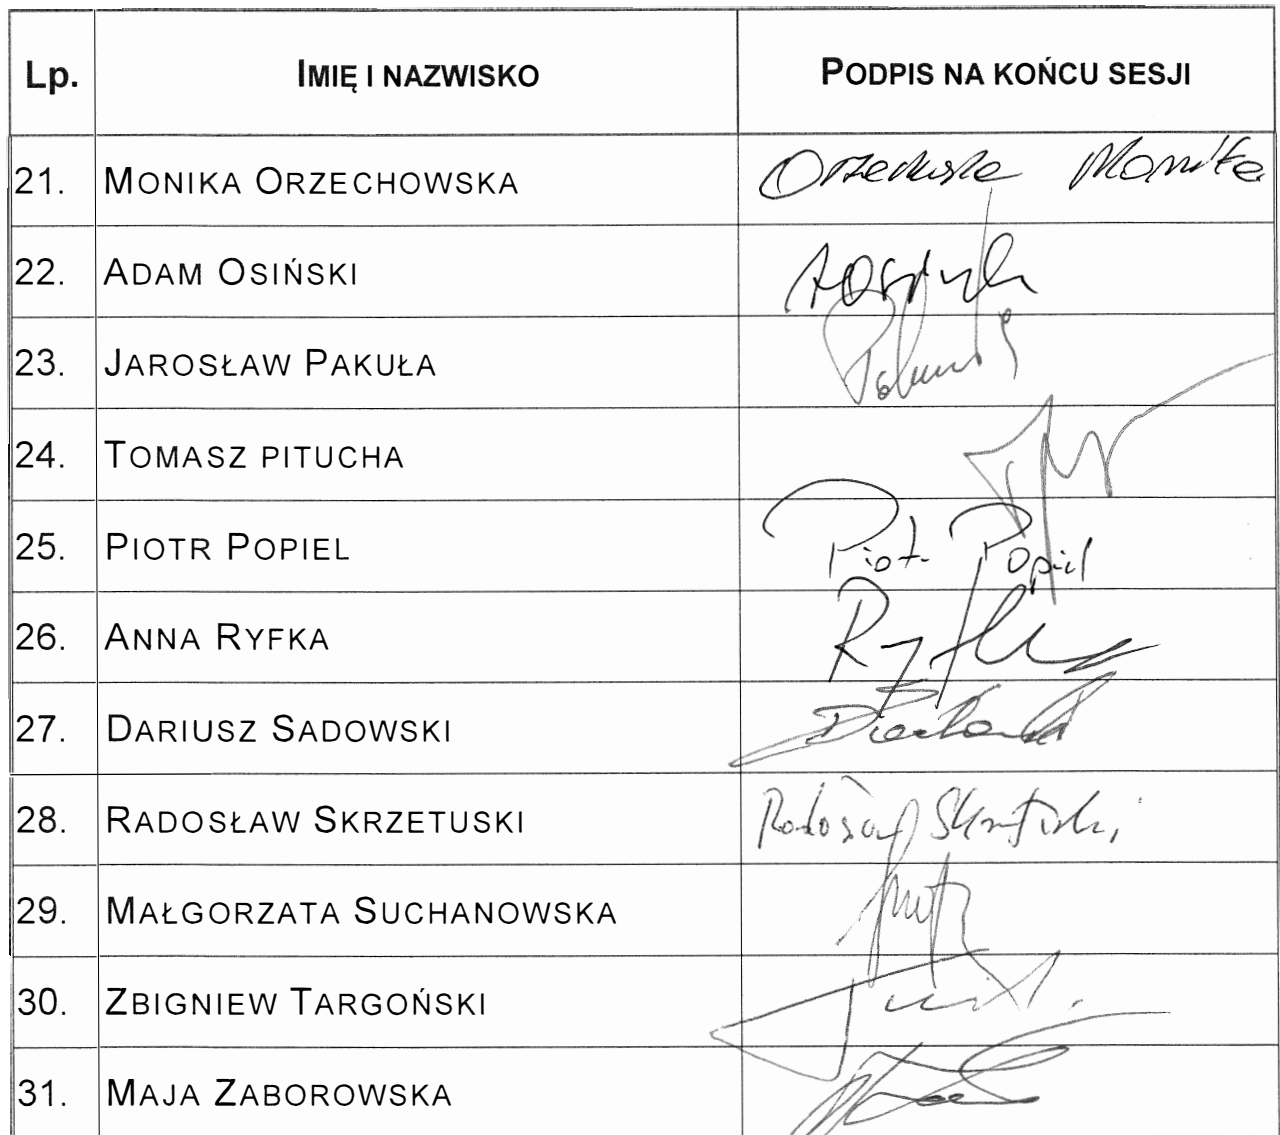 Lp. IMIĘ I NAZWISKO PODPIS NA KOŃCU SESJI
21. MONIKA ORZECHOWSKA Orzechowska Monika
22. ADAM OSIŃSKI
23. JAROSŁAW PAKUŁA
24. TOMASZ PITUCHA
25. PIOTR POPIEL Piotr Popiel
26. ANNA RYFKA
27. DARIUSZ SADOWSKI
28. RADOSŁAW SKRZETUSKI Radosław Skrzetuski
29. MAŁGORZATA SUCHANOWSKA
30. ZBIGNIEW TARGOŃSKI
31. MAJA ZABOROWSKA